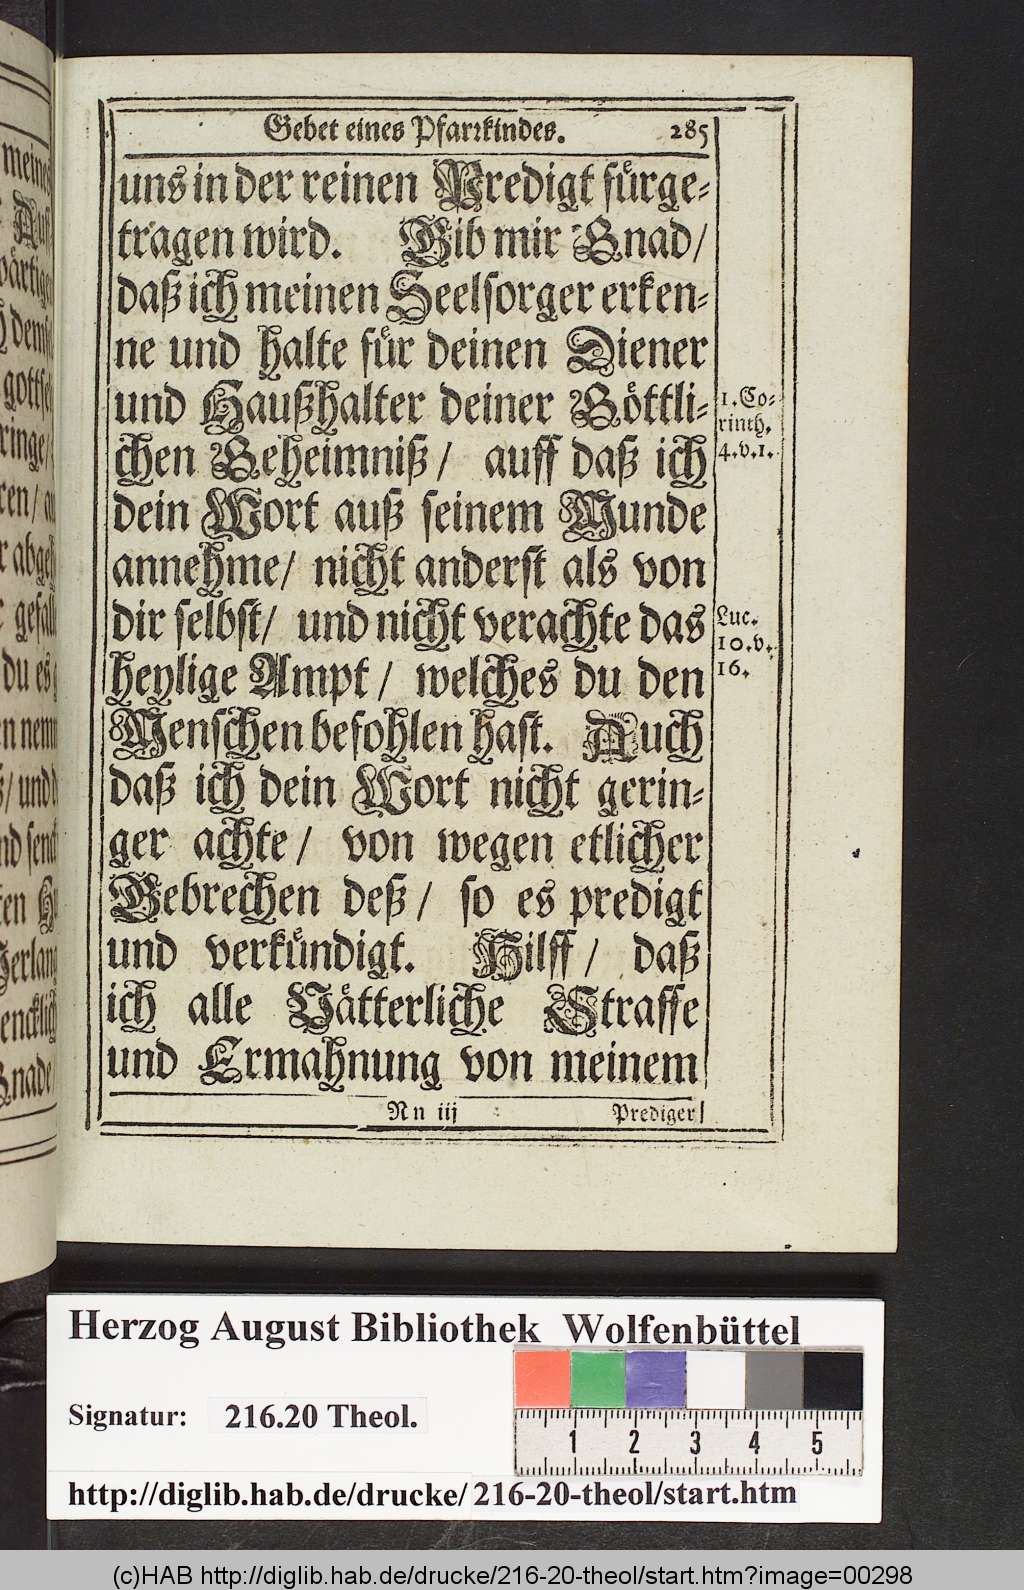 Gebet eines Pfarrkindes. 285
uns in der reinen Predigt fürge-
tragen wird. Gib mir Gnad/
daß ich meinen Seelsorger erken-
ne und halte für deinen Diener
und Haußhalter deiner Göttli-
chen Geheimniß/ auff daß ich
dein Wort auß seinem Munde
annehme/ nicht anderst als von
dir selbst/ und nicht verachte das
heylige Ampt/ welches du den
Menschen befohlen hast. Auch
daß ich dein Wort nicht gerin-
ger achte/ von wegen etlicher
Gebrechen deß/ so es predigt
und verkündigt. Hilff/ daß
ich alle Vätterliche Straffe
und Ermahnung von meinem
Nn iij Prediger
1. Co-
rinth.
4.v.1.
Luc.
10.v.
16.
meines
Auff
wärtigen
gottse
ringe/
gefall
du es
Gnade
Herzog August Bibliothek Wolfenbüttel
Signatur: 216.20 Theol.
1 2 3 4 5
http://diglib.hab.de/drucke/216-20-theol/start.htm
(c)HAB http://diglib.hab.de/drucke/216-20-theol/start.htm?image=00298